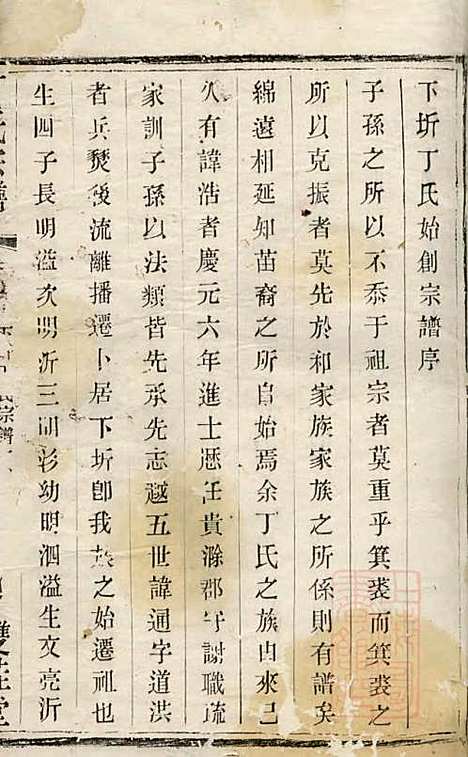 下圻丁氏始創宗譜序
子孫之所以不忝于祖宗者莫重乎箕裘而箕裘之
所以克振者莫先於和家族家族之所係則有譜矣
綿遠相延知苗裔之所自始焉余丁氏之族由來已
久有諱浩者慶元六年進士歷任貴滁郡守謝職疏
家訓子孫以法類皆先承先志越五世諱通字道洪
者兵燹後流離播遷卜居下圻卽我族之始遷祖也
生四子長明溢次明沂三明彩幼明泗溢生文亮沂
氏宗譜
雙桂堂